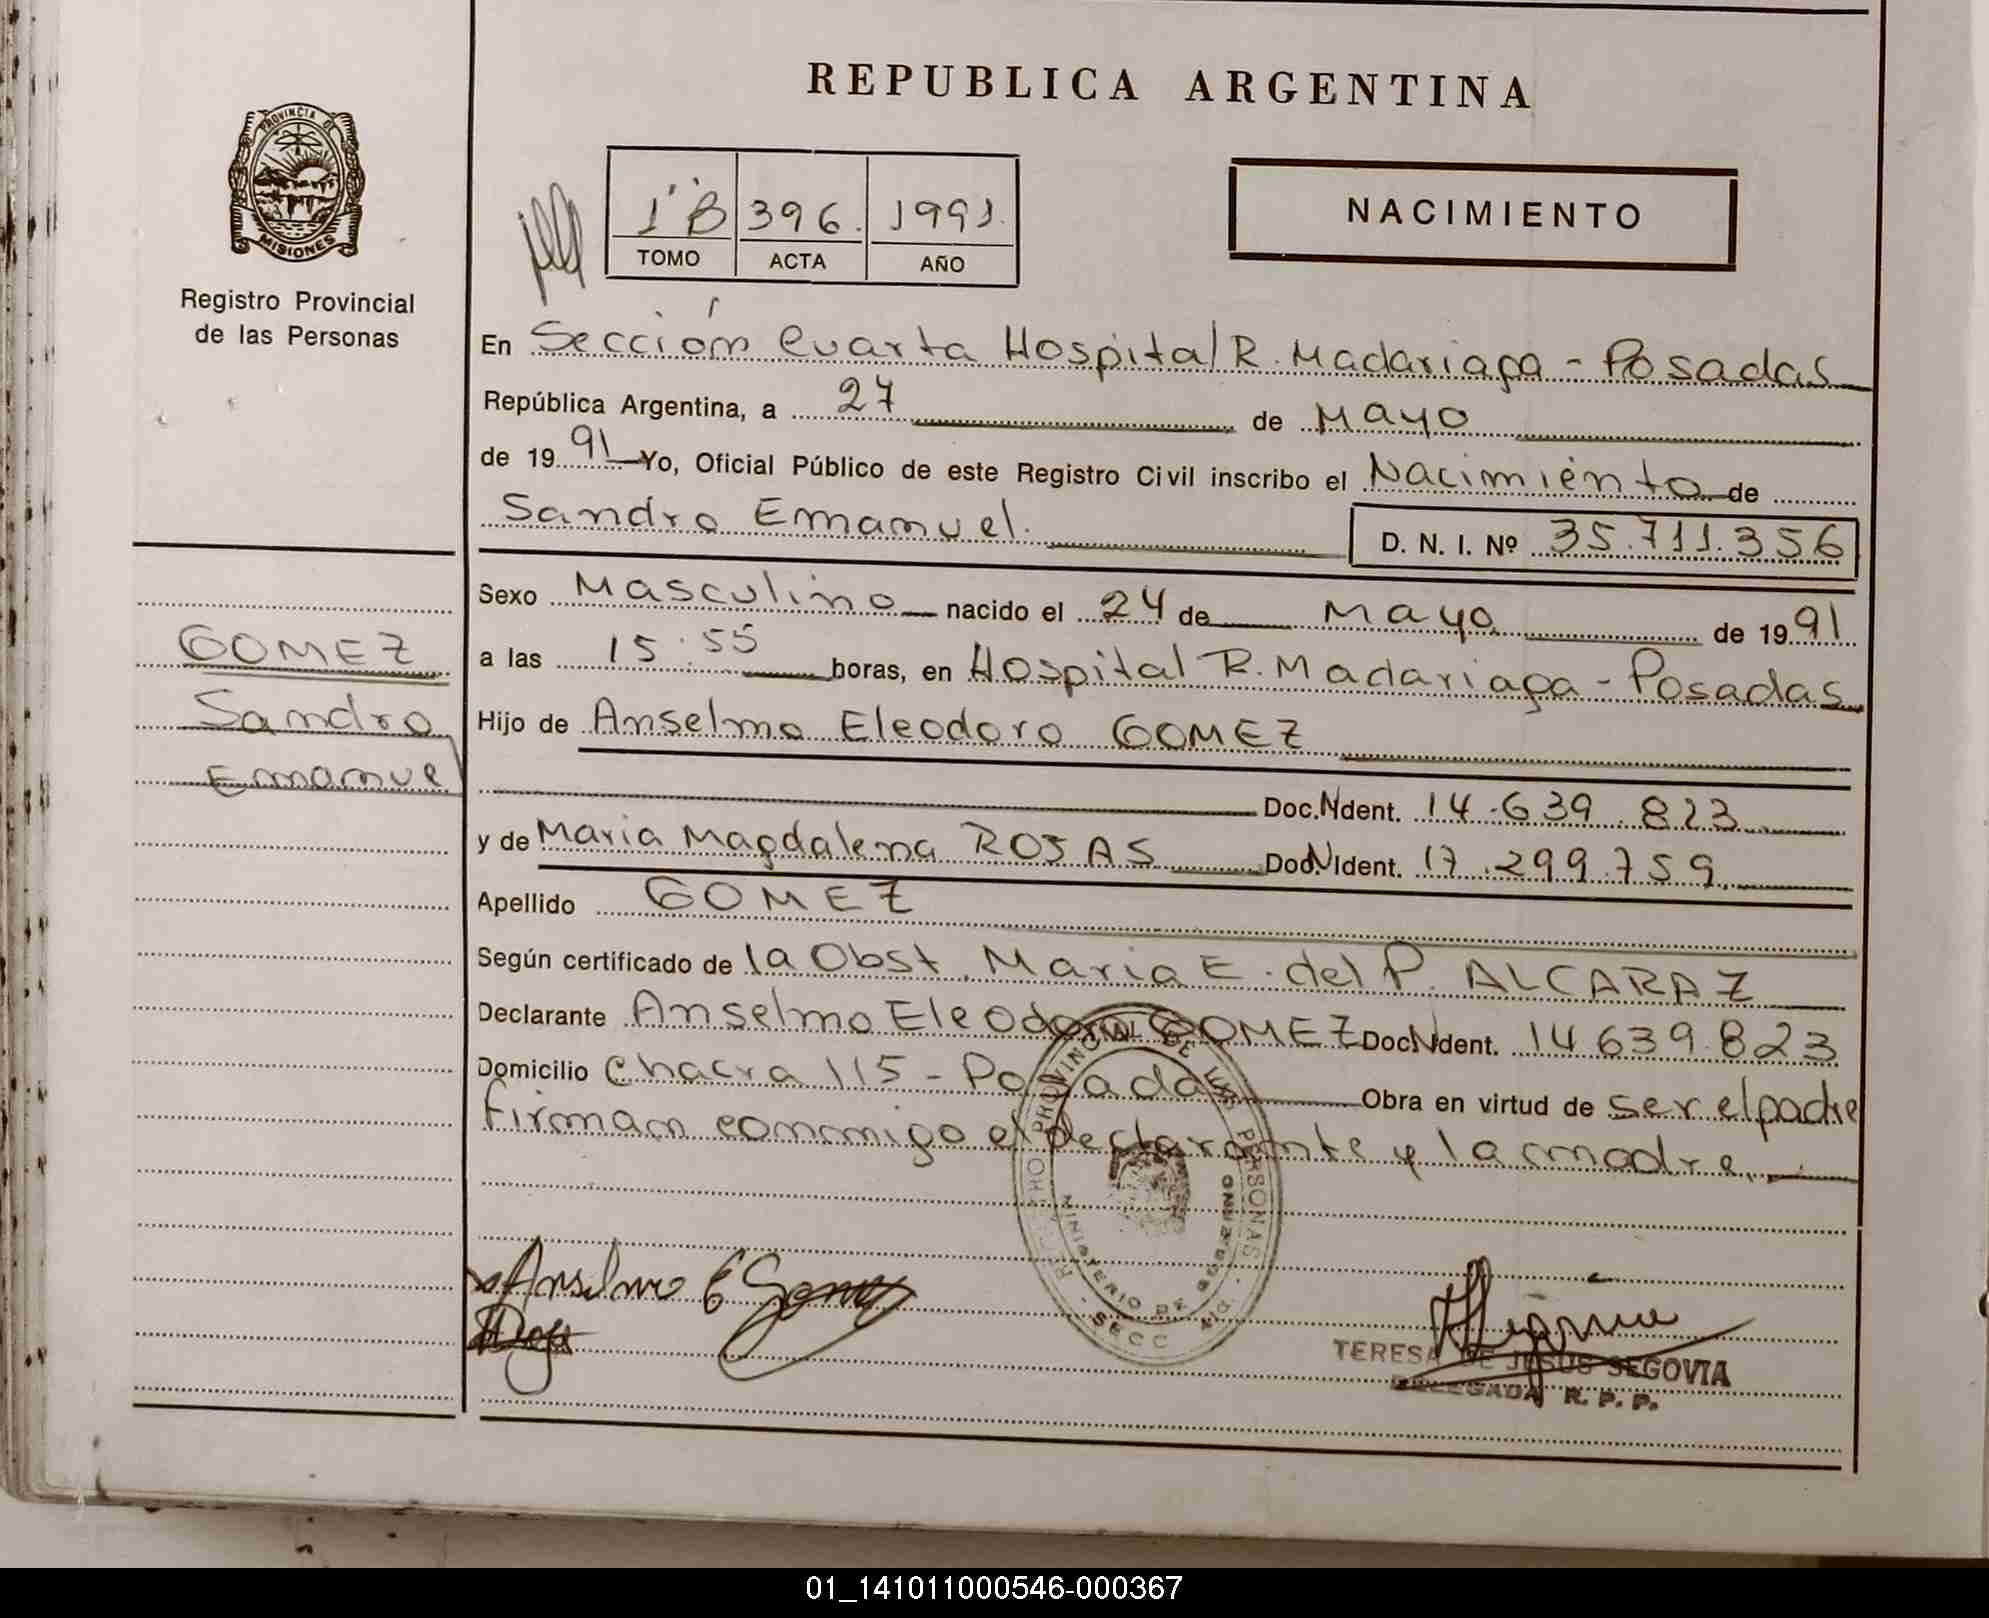 REPUBLICA ARGENTINA
PROVINCIA DE
MISIONES
Registro Provincial
de las Personas
1ºB 396. 1991.
TOMO ACTA AÑO
NACIMIENTO
En Sección Cuarta Hospital R. Madariaga - Posadas
República Argentina, a 27 de Mayo
de 1991 Yo, Oficial Público de este Registro Civil inscribo el Nacimiento de
Sandro Emanuel. D. N. I. Nº 35.711.356
Sexo Masculino nacido el 24 de Mayo de 1991
a las 15:55 horas, en Hospital R. Madariaga - Posadas
Hijo de Anselmo Eleodoro GOMEZ
Doc.N Ident. 14.639.823
y de Maria Magdalena ROJAS Doc.N Ident. 17.299.759.
Apellido GOMEZ
Según certificado de la Obst. Maria E. del P. ALCARAZ
Declarante Anselmo Eleodoro GOMEZ Doc.N Ident. 14639823
Domicilio Chacra 115 - Posadas Obra en virtud de ser el padre
Firman conmigo el declarante y la madre.
GOMEZ
Sandro
Emanuel
Anselmo E Gomez
REGISTRO PROVINCIAL DE LAS PERSONAS
MINISTERIO DE GOBIERNO
SECC 4ta
TERESA DE JESUS SEGOVIA
DELEGADA R. P. P.
01_141011000546-000367